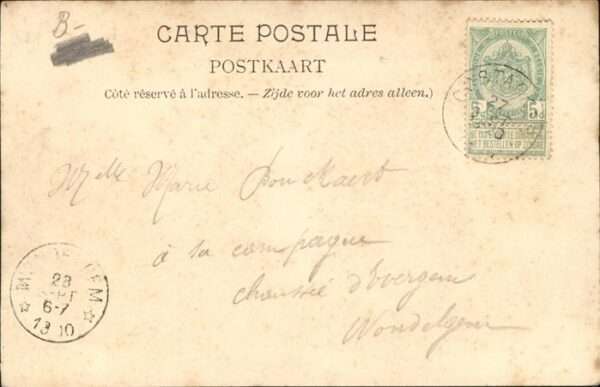 B-
CARTE POSTALE
POSTKAART
Côté réservé à l'adresse. — Zijde voor het adres alleen.)
5 5
NE PAS LIVRER LE DIMANCHE
NIET BESTELLEN OP ZONDAG
27
Melle Marie Bouckaert
à sa campagne
chaussée d'Evergem
Wondelgem
28
6-7